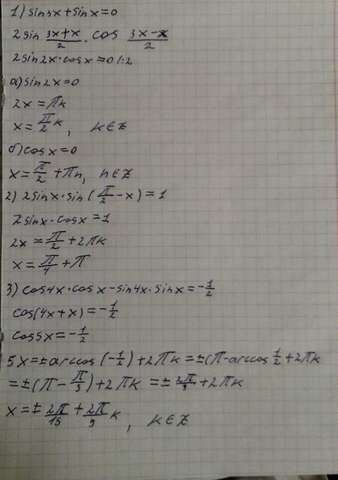 1) sin3x+sinx=0
2sin (3x+x)/2 · cos (3x-x)/2
2sin2x·cosx=0 |:2
a) sin2x=0
2x=πk
x=π/2 k, k∈Z
б) cosx=0
x=π/2+πn, n∈Z
2) 2sinx·sin(π/2-x)=1
2sinx·cosx=1
2x=π/2+2πk
x=π/4+π
3) cos4x·cosx-sin4x·sinx=-1/2
cos(4x+x)=-1/2
cos5x=-1/2
5x=±arccos(-1/2)+2πk=±(π-arccos 1/2+2πk
=±(π-π/3)+2πk=±2π/3+2πk
x=±2π/15+2π/5 k, k∈Z